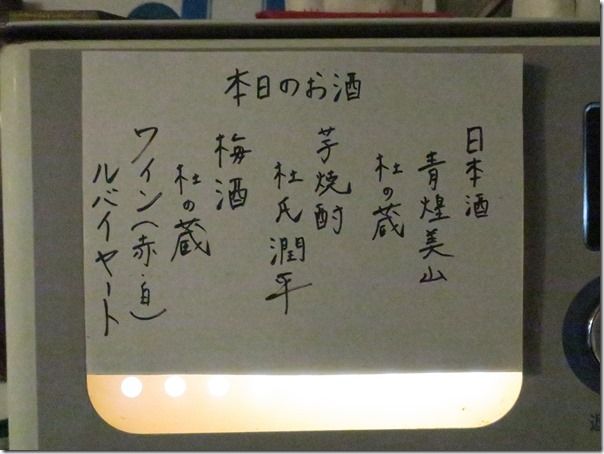 本日のお酒
日本酒
青煌美山
杜の蔵
芋焼酎
杜氏潤平
梅酒
杜の蔵
ワイン(赤・白)
ルバイヤート